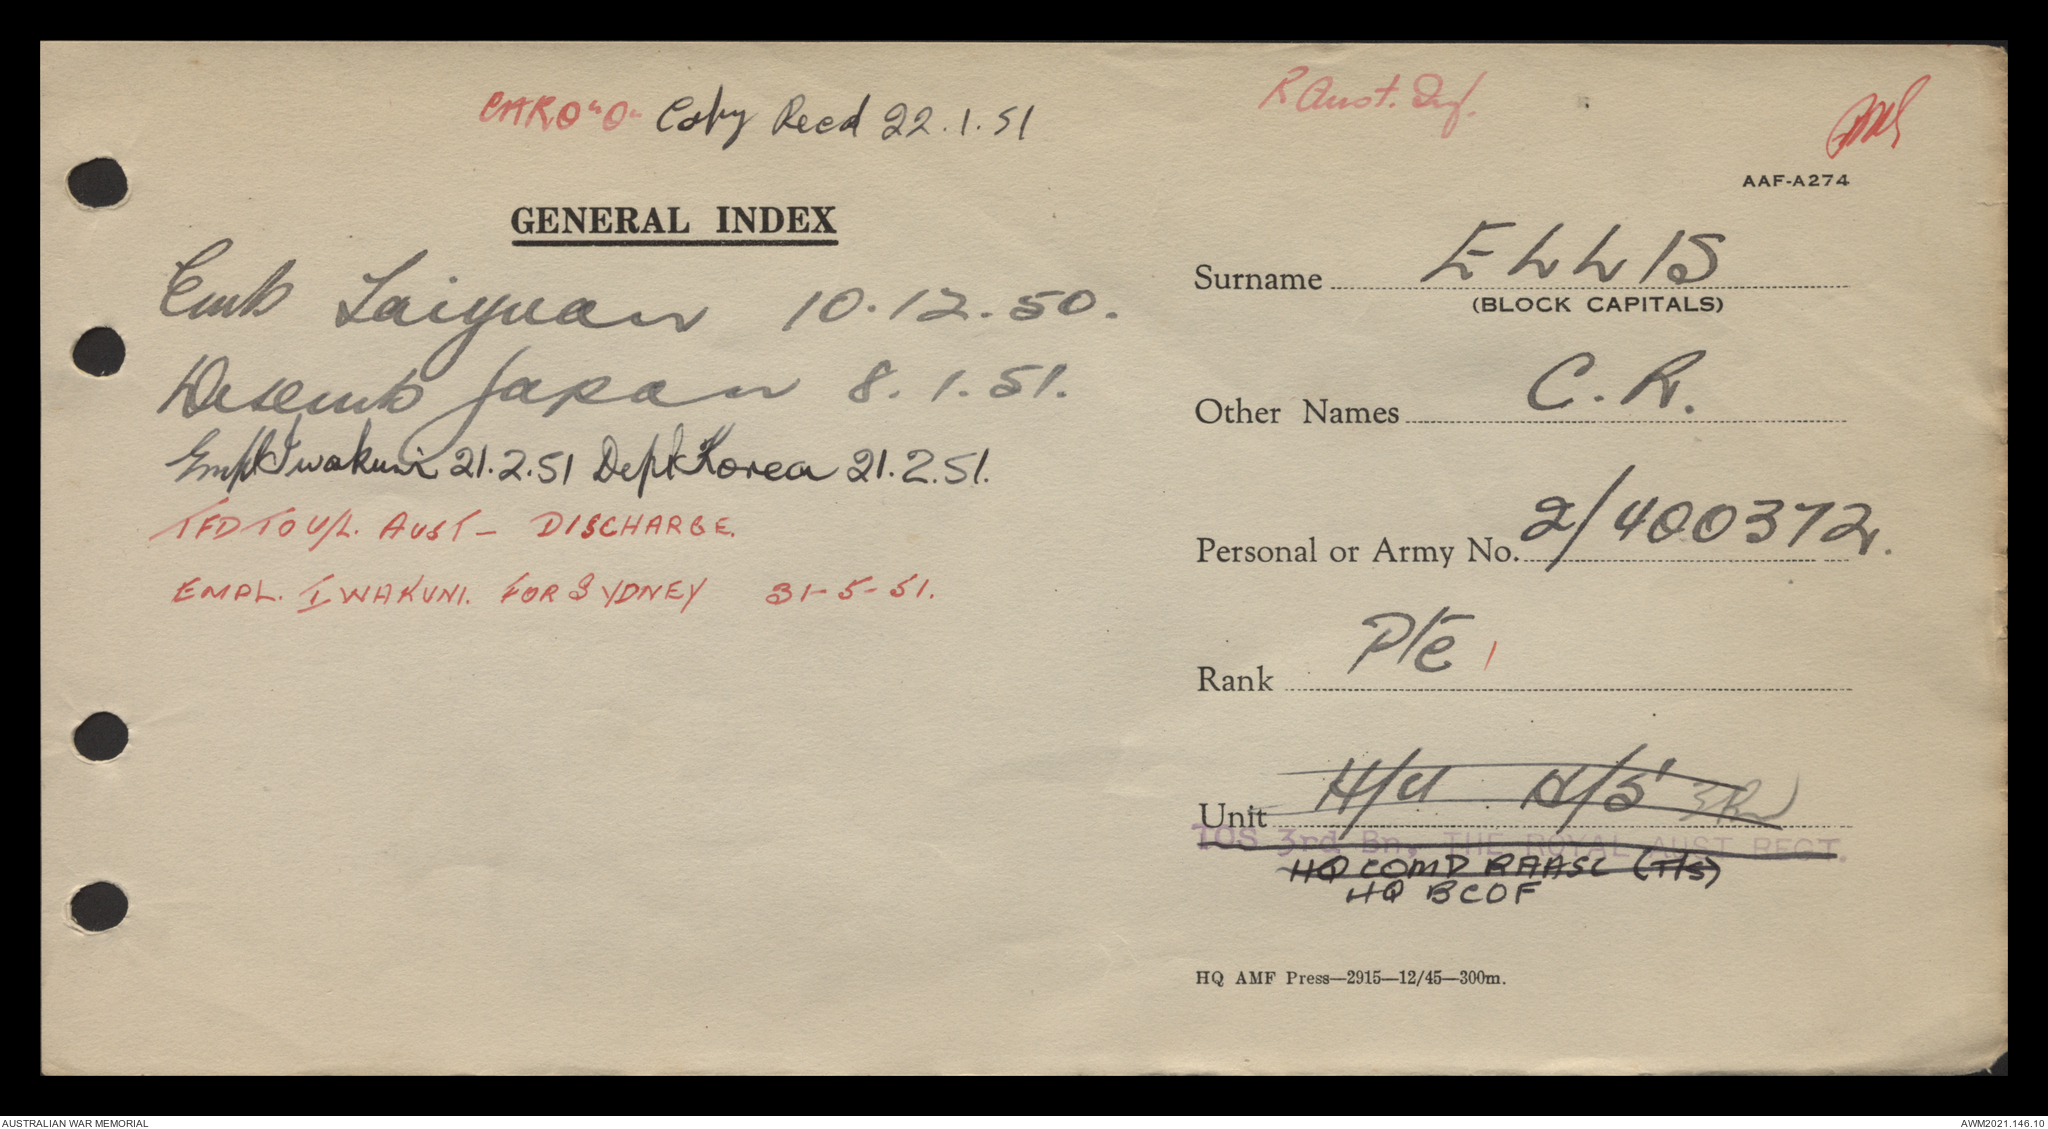 CARO "O" Copy Recd 22.1.51
GENERAL INDEX
Emb Taiyuan 10.12.50.
Disemb Japan 8.1.51.
Empl Iwakuni 21.2.51 Dept Korea 21.2.51.
TFD TO U/L. AUST - DISCHARGE.
EMPL. IWAKUNI. FOR SYDNEY 31-5-51.
R Aust. Inf.
AAF-A274
Surname ELLIS
(BLOCK CAPITALS)
Other Names C.R.
Personal or Army No. 2/400372.
Rank Pte
Unit
TOS 3rd Bn, THE ROYAL AUST REGT.
HQ COMD RAASC (T/S)
HQ BCOF
HQ AMF Press—2915—12/45—300m.
AUSTRALIAN WAR MEMORIAL
AWM2021.146.10